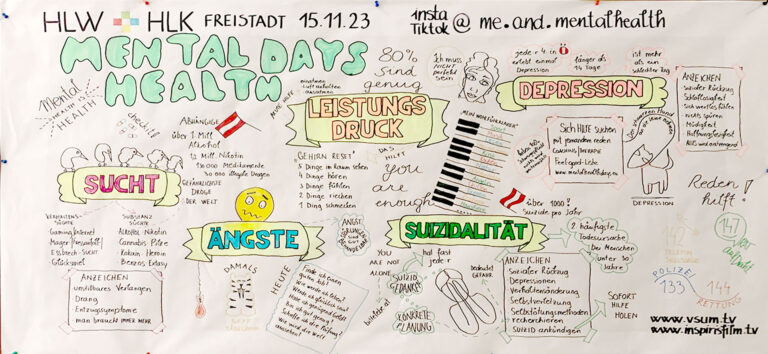 HLW + HLK FREISTADT 15.11.23
insta
Tiktok @ me.and.mentalhealth
MENTAL DAYS
HEALTH
Mental
HEALTH
80%
sind
genug
Ich muss
NICHT
perfekt
sein
jede r 4. in Ö
erlebt einmal
Depression
länger als
14 Tage
ist mehr
als ein
schlechter Tag
DEPRESSION
ANZEICHEN
sozialer Rückzug
Schlaflosigkeit
Sich wertlos fühlen
nichts spüren
Müdigkeit
Hoffnungslosigkeit
Alles wird anstrengend
Sich HILFE suchen
mit jemandem reden
Feel-good-Liste
DEPRESSION
Reden
hilft!
einatmen
Luft anhalten
ausatmen
AKUTE HILFE
LEISTUNGS
DRUCK
GEHIRN "RESET"
5 Dinge im Raum sehen
4 Dinge hören
3 Dinge fühlen
2 Dinge riechen
1 Ding schmecken
DAS
HILFT
you
are
enough
ABHÄNGIGE
über 1 Mill.
Alkohol
1,2 Mill. Nikotin
150 000 Medikamente
30 000 illegale Drogen
GEFÄHRLICHSTE
DROGE
DER WELT
SUCHT
VERHALTENS-
SÜCHTE
Gaming Internet
Ess-Brech-Sucht
Glücksspiel
SUBSTANZ
SÜCHTE
Alkohol Nikotin
Cannabis Pilze
Kokain Heroin
Benzos Extasy
ANZEICHEN
unstillbares Verlangen
Drang
Entzugssymptome
man braucht IMMER MEHR
ÄNGSTE
ANGST-
STÖRUNGEN
SIND
GUT
BEHANDELBAR
DAMALS
HEUTE
Finde ich einen
guten Job?
Wie werde ich leben?
Werde ich glücklich sein?
Bin ich gut genug?
Schaffe ich die Prüfung?
Wie wird die Welt
aussehen?
SUIZIDALITÄT
über 1000
Suizide pro Jahr
2. häufigste
Todesursache
bei Menschen
unter 30
Jahre
YOU ARE
NOT
ALONE
hat fast
jede r
SUIZID
GEDANKEN
bedeutet
GEFAHR
KONKRETE
PLANUNG
ANZEICHEN
Sozialer Rückzug
Depressionen
Verhaltensänderung
Selbstverletzung
Selbsttötungsmethoden
recherchieren
SUIZID ankündigen
SOFORT
HILFE
HOLEN
147
Rat auf Draht
142
TELEFON
SEELSORGE
POLIZEI
133
144
RETTUNG
www.vsum.tv
www.inspirisfilm.tv